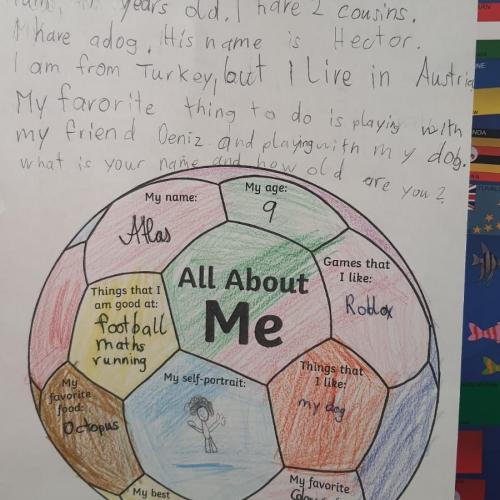 years old. I have 2 cousins.
I have a dog. His name is Hector.
I am from Turkey, but I Live in Austria
My favorite thing to do is playing with
my friend Deniz and playing with my dog.
what is your name and how old are you?
My name:
Atlas
My age:
9
Games that
I like:
Roblox
All About
Me
Things that I
am good at:
football
maths
running
My self-portrait:
Things that
I like:
my dog
My
favorite
food:
Octopus
My best
My favorite